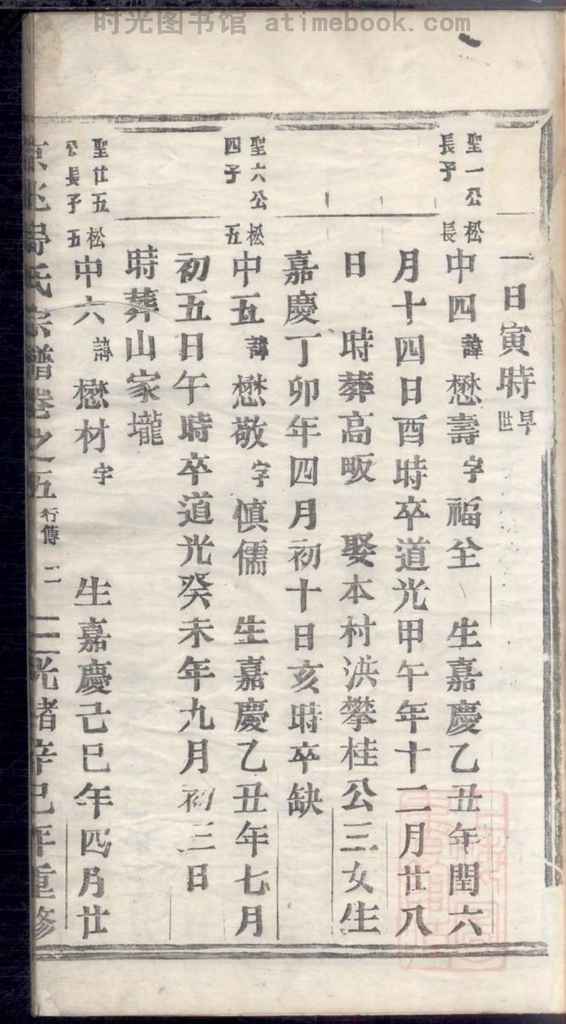 时光图书馆 atimebook.com
一日寅時早世
聖一公松
長子 長
中四諱懋壽字福全 生嘉慶乙丑年閏六
月十四日酉時卒道光甲午年十二月廿八
日 時葬高畈 娶本村洪攀桂公三女生
嘉慶丁卯年四月初十日亥時卒缺
聖六公松
四子 五
中五諱懋敬字慎儒 生嘉慶乙丑年七月
初五日午時卒道光癸未年九月初三日
時葬山家壠
聖廿五松
公長子五
中六諱懋材字 生嘉慶己巳年四月廿
氏宗譜卷之五 行傳 二 光緒辛巳年重修